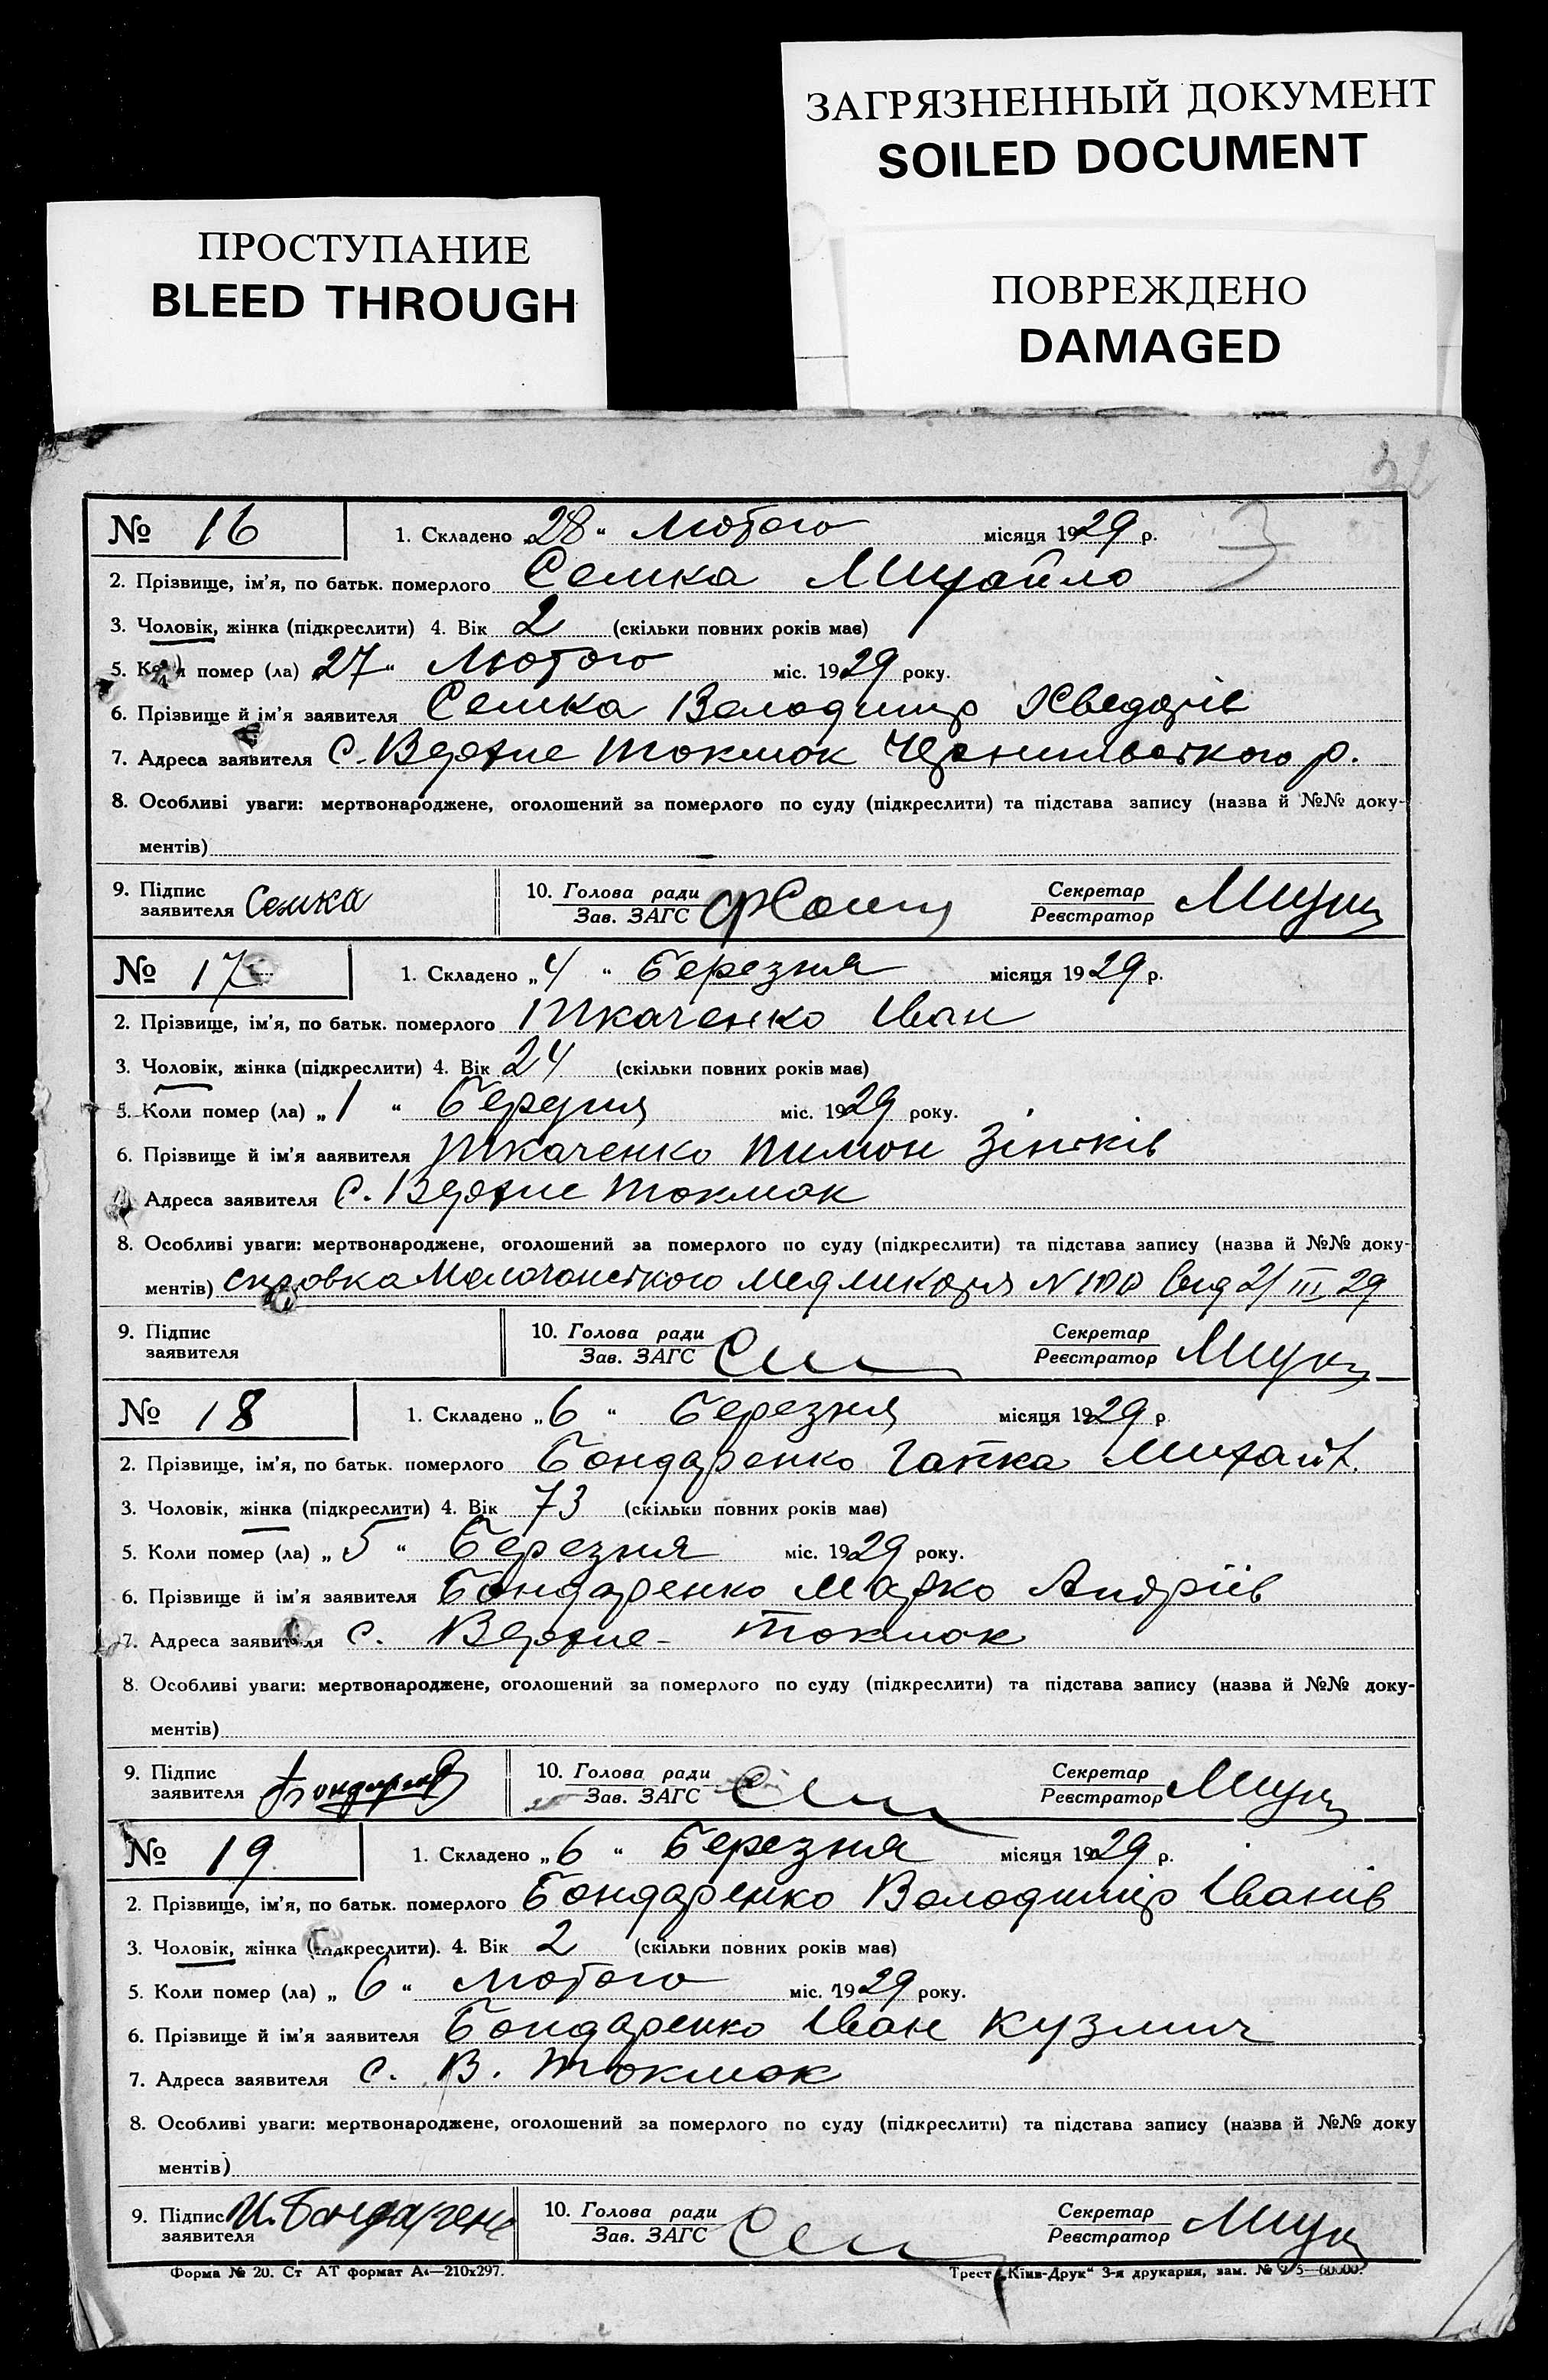 ЗАГРЯЗНЕННЫЙ ДОКУМЕНТ
SOILED DOCUMENT
ПРОСТУПАНИЕ
BLEED THROUGH
ПОВРЕЖДЕНО
DAMAGED
№ 16 1. Складено „28“ Лютого місяця 1929 р.
2. Прізвище, ім’я, по батьк. померлого Семка Михайло
3. Чоловік, жінка (підкреслити) 4. Вік 2 (скільки повних років має)
5. Коли помер (ла) 27“ Лютого міс. 1929 року.
6. Прізвище й ім’я заявителя Семка Володимир Хведорів
7. Адреса заявителя с. Верхнє Токмок Чернигівського р.
8. Особливі уваги: мертвонароджене, оголошений за померлого по суду (підкреслити) та підстава запису (назва й №№ доку-
ментів)
9. Підпис заявителя Семка 10. Голова ради Зав. ЗАГС Секретар Реєстратор
№ 17 1. Складено „4“ Березня місяця 1929 р.
2. Прізвище, ім’я, по батьк. померлого Ткаченко Іван
3. Чоловік, жінка (підкреслити) 4. Вік 24 (скільки повних років має)
5. Коли помер (ла) „1“ Березня міс. 1929 року.
6. Прізвище й ім’я заявителя Ткаченко Пимон Зіньків
Адреса заявителя с. Верхнє Токмак
8. Особливі уваги: мертвонароджене, оголошений за померлого по суду (підкреслити) та підстава запису (назва й №№ доку-
ментів) справка Молочанського медликаря N 100 від 2/III 29
9. Підпис заявителя 10. Голова ради Зав. ЗАГС Секретар Реєстратор
№ 18 1. Складено „6“ Березня місяця 1929 р
2. Прізвище, ім’я, по батьк. померлого Бондаренко Гапка Михайл.
3. Чоловік, жінка (підкреслити) 4. Вік 73 (скільки повних років має)
5. Коли помер (ла) „5“ Березня міс. 1929 року.
6. Прізвище й ім’я заявителя Бондаренко Марко Андріїв
7. Адреса заявителя с. Верхнє-Токмак
8. Особливі уваги: мертвонароджене, оголошений за померлого по суду (підкреслити) та підстава запису (назва й №№ доку-
ментів)
9. Підпис заявителя 10. Голова ради Зав. ЗАГС Секретар Реєстратор
№ 19 1. Складено „6“ Березня місяця 1929 р.
2. Прізвище, ім’я, по батьк. померлого Бондаренко Володимір Іванів
3. Чоловік, жінка (підкреслити). 4. Вік 2 (скільки повних років має)
5. Коли помер (ла) „6“ Лютого міс. 1929 року.
6. Прізвище й ім’я заявителя Бондаренко Іван Кузмич
7. Адреса заявителя с. В. Токмак
8. Особливі уваги: мертвонароджене, оголошений за померлого по суду (підкреслити) та підстава запису (назва й №№ доку
ментів)
9. Підпис заявителя И. Бондарено 10. Голова ради Зав. ЗАГС Секретар Реєстратор
Форма № 20. Ст АТ формат А4—210х297. Трест „Київ-Друк“ 3-я друкарня, зам. №